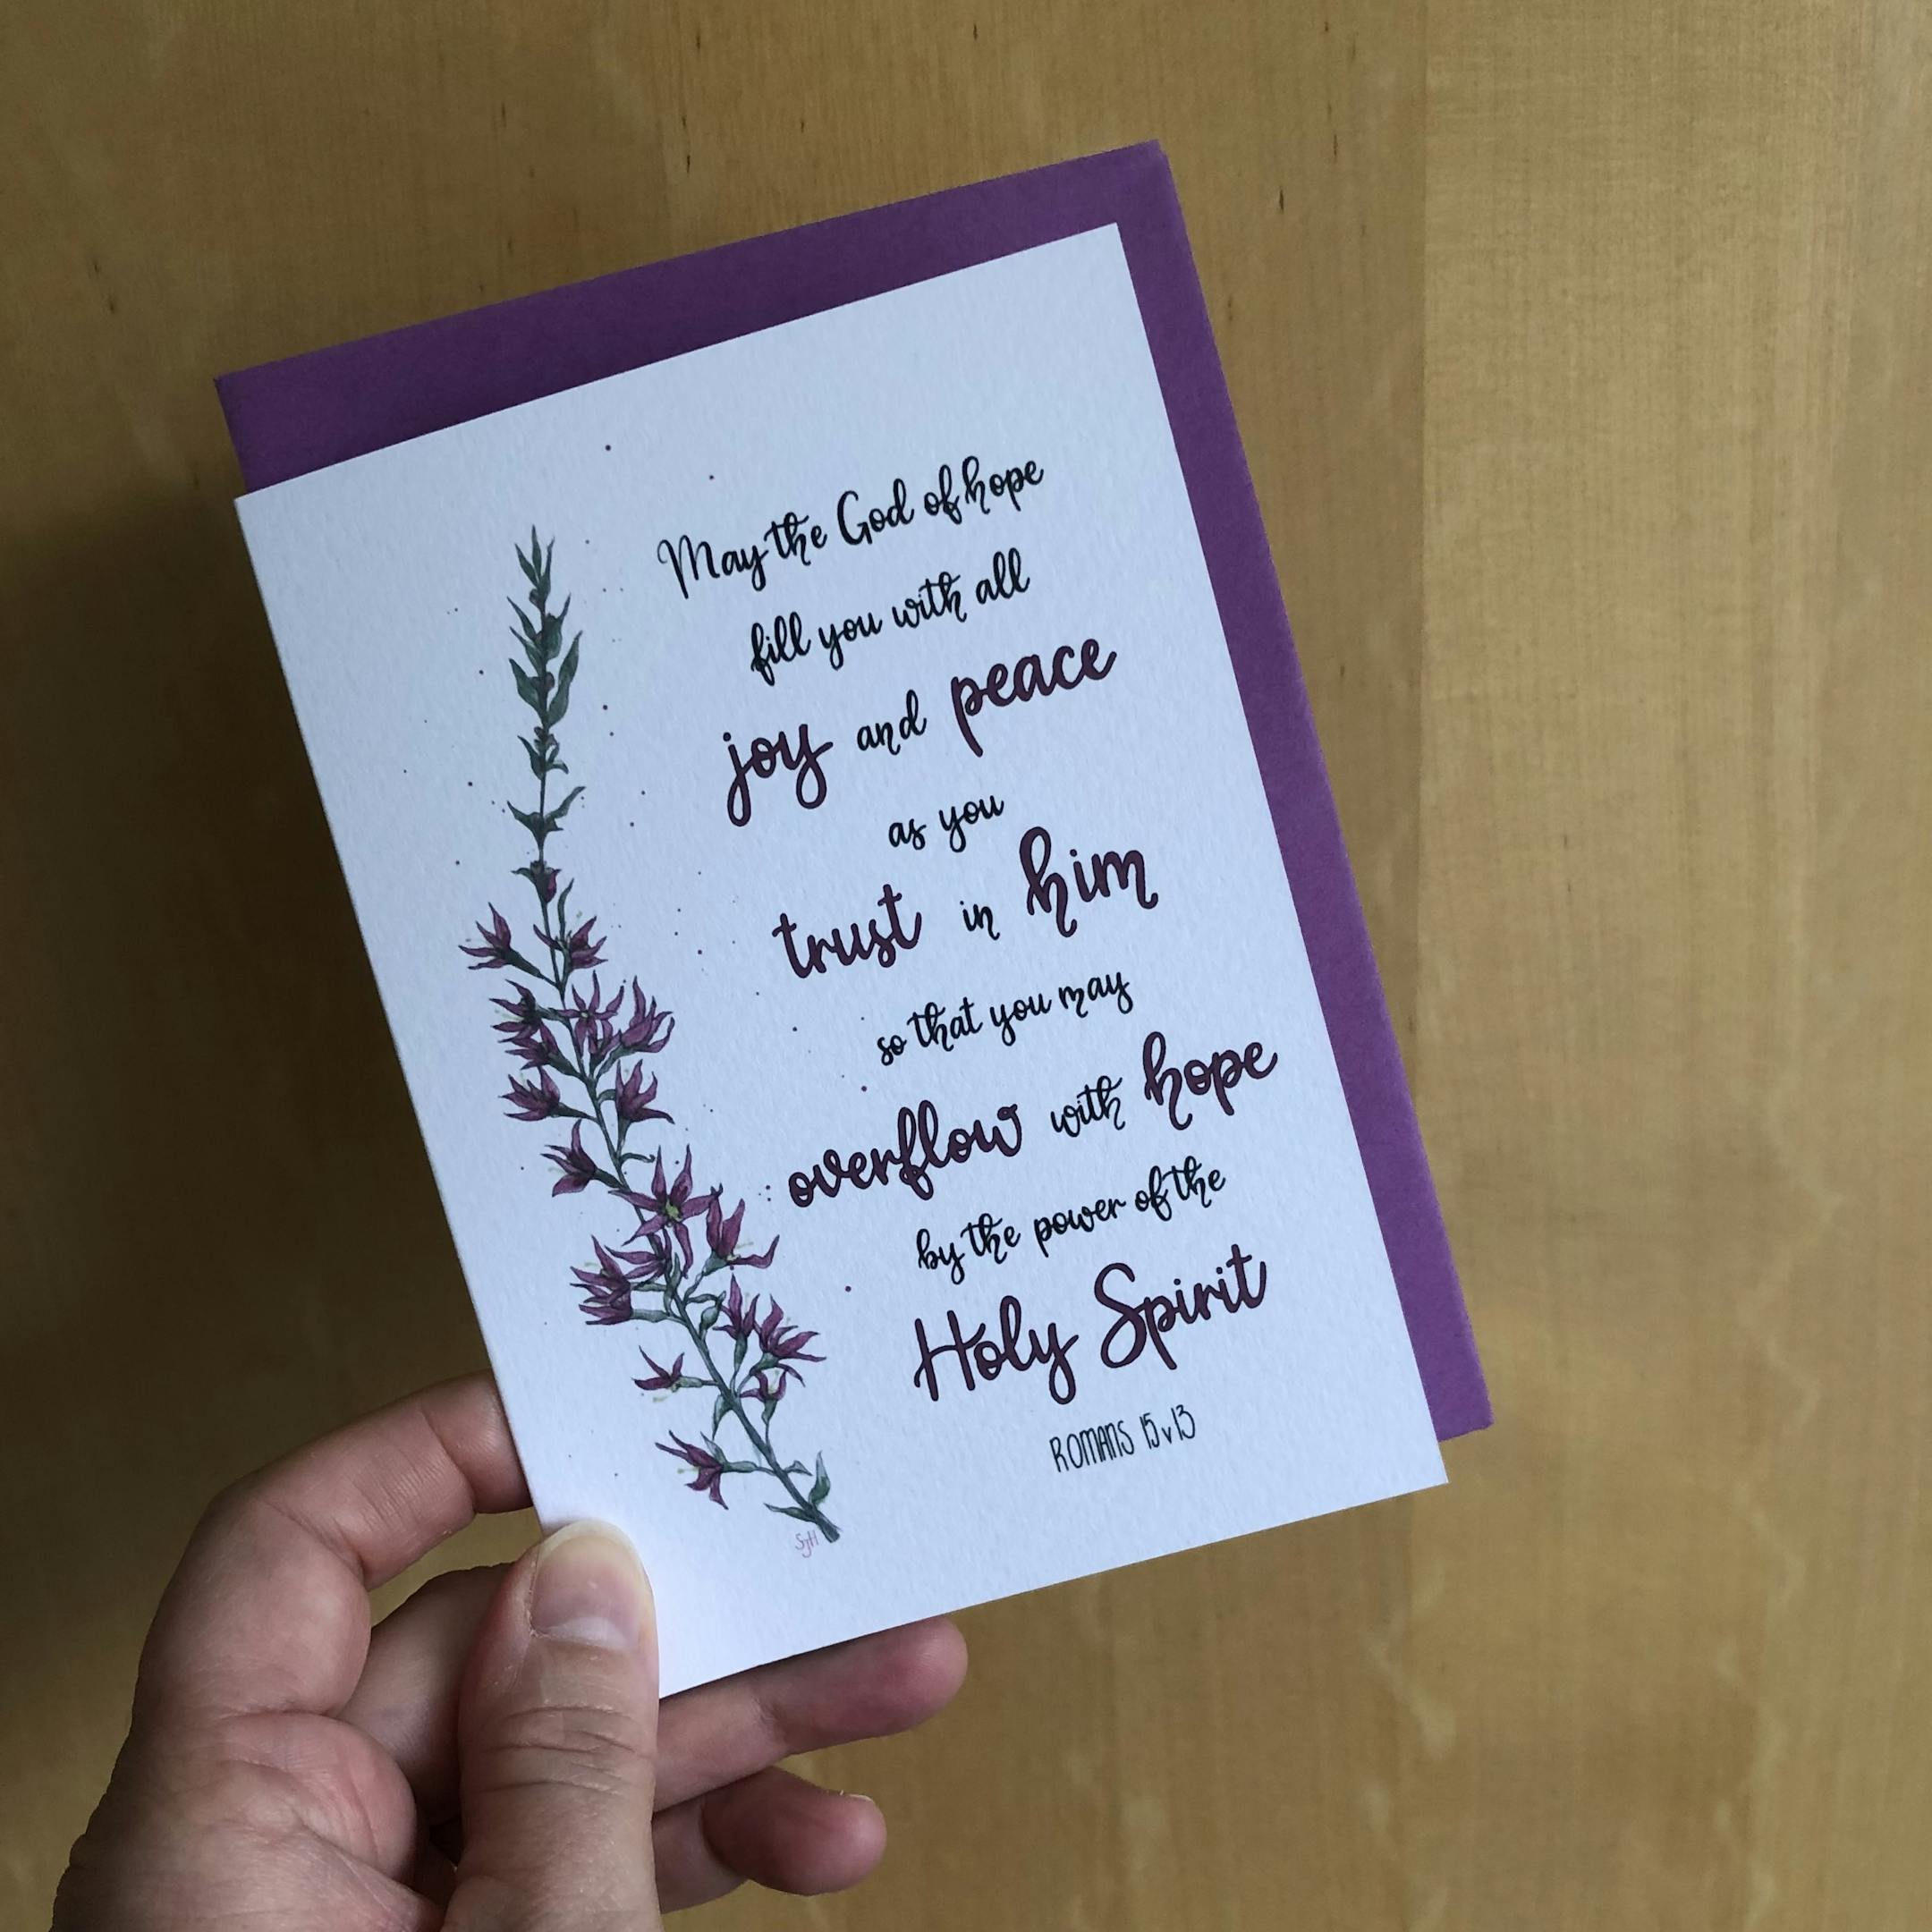 May the God of hope
fill you with all
joy and peace
as you
trust in him
so that you may
overflow with hope
by the power of the
Holy Spirit
ROMANS 15 v 13
SJH